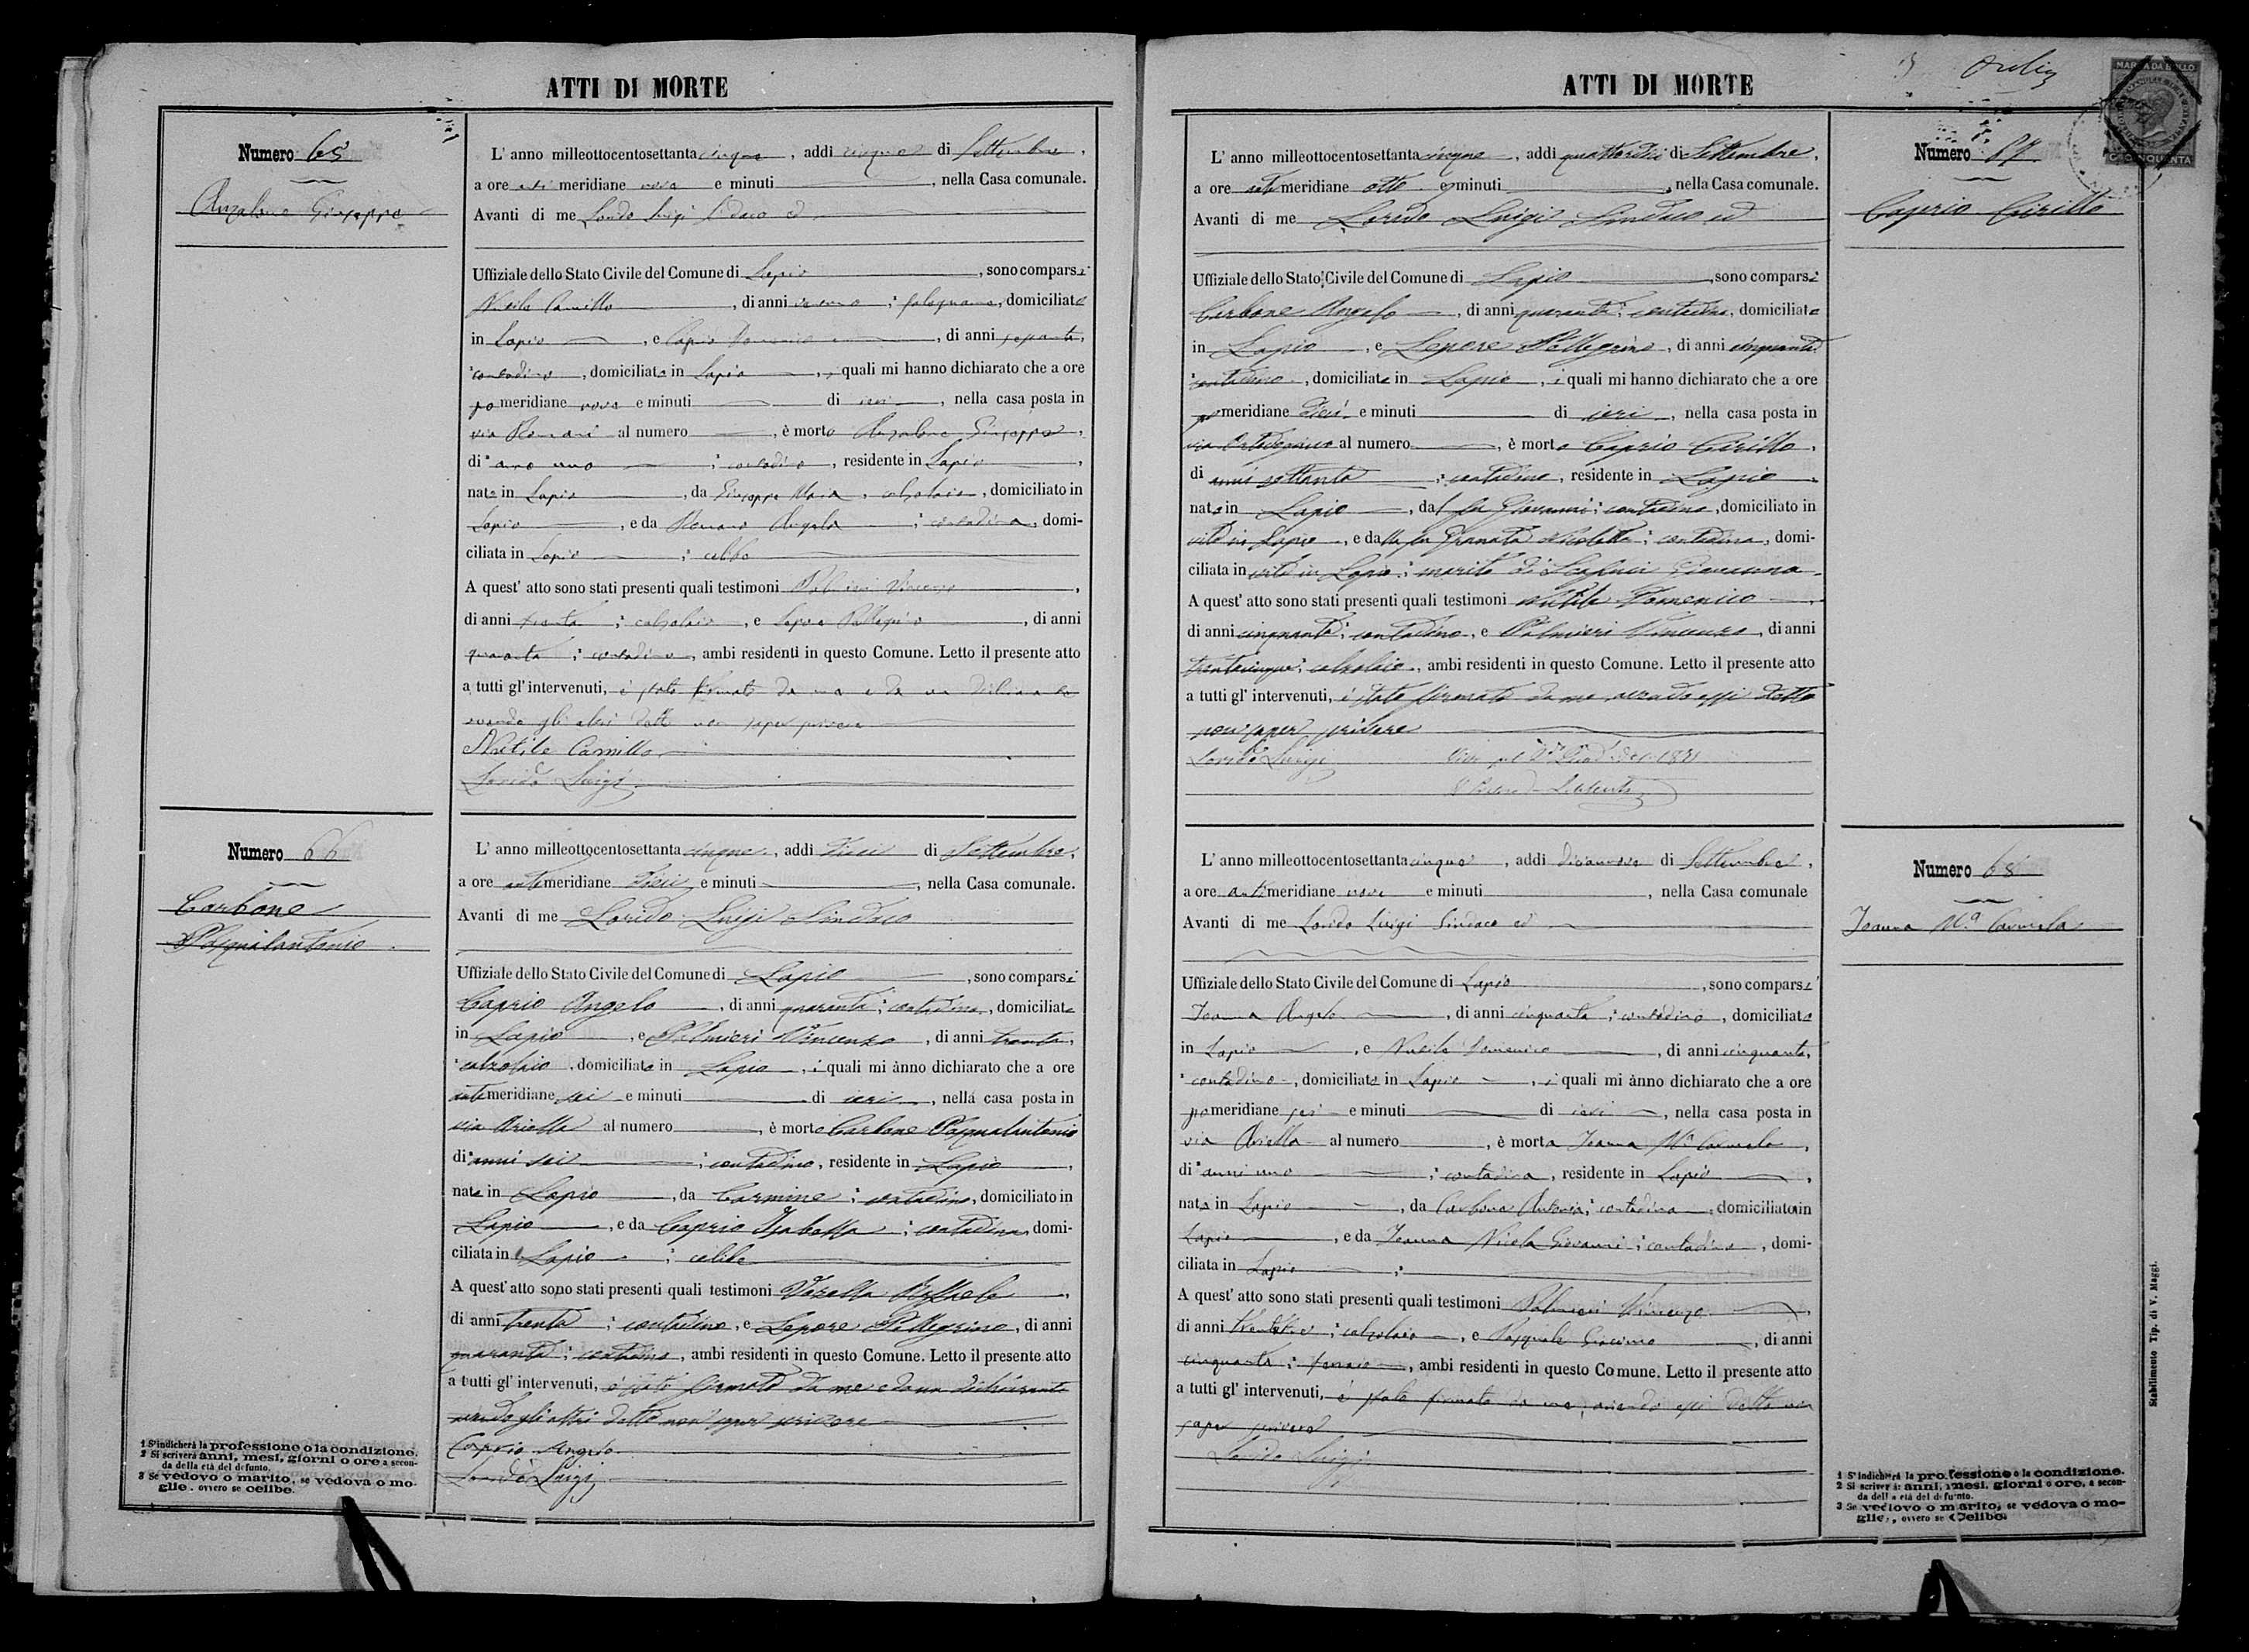 ATTI DI MORTE
Numero 65
Anzalone Giuseppe
L' anno milleottocentosettanta cinque, addi cinque di Settembre,
a ore anti meridiane nove e minuti, nella Casa comunale.
Avanti di me Lorido Luigi Sindaco ed
Uffiziale dello Stato Civile del Comune di Lapio, sono comparsi
Nutile Camillo, di anni; falegname, domiciliato
in Lapio, e Caprio Domenico, di anni sessanta,
contadino, domiciliato in Lapio, i quali mi hanno dichiarato che a ore
po meridiane nove e minuti di ieri, nella casa posta in
via Romani al numero, è morto Anzalone Giuseppe,
di anno uno; contadino, residente in Lapio,
nato in Lapio, da Giuseppe Maria, calzolaio, domiciliato in
Lapio, e da Romano Angela; contadina, domi-
ciliata in Lapio; celibe
A quest' atto sono stati presenti quali testimoni Palmieri Vincenzo,
di anni trenta; calzolaio, e Lepore Pellegrino, di anni
quaranta; contadino, ambi residenti in questo Comune. Letto il presente atto
a tutti gl' intervenuti, è stato firmato da me e da un dichiarante
avendo gli altri detto non saper scrivere
Nutile Camillo
Lorido Luigi
Numero 66
Carbone
Pasqualantonio
L' anno milleottocentosettanta cinque, addi dieci di Settembre,
a ore antimeridiane dieci e minuti, nella Casa comunale.
Avanti di me Lorido Luigi Sindaco
Uffiziale dello Stato Civile del Comune di Lapio, sono comparsi
Caprio Angelo, di anni quaranta; contadino, domiciliato
in Lapio, e Palmieri Vincenzo, di anni trenta,
calzolaio, domiciliato in Lapio, i quali mi ànno dichiarato che a ore
antimeridiane sei e minuti di ieri, nella casa posta in
via Ariella al numero, è morto Carbone Pasqualantonio
di anni sei; contadino, residente in Lapio,
nato in Lapio, da Carmine; contadino, domiciliato in
Lapio, e da Caprio Isabella; contadina, domi-
ciliata in Lapio; celibe
A quest' atto sono stati presenti quali testimoni Raffaele,
di anni trenta; contadino, e Lepore Pellegrino, di anni
quaranta; contadino, ambi residenti in questo Comune. Letto il presente atto
a tutti gl' intervenuti, è stato firmato da me e da un dichiarante
avendo gli altri detto non saper scrivere
Caprio Angelo
Lorido Luigi
1 S'indicherà la professione o la condizione.
2 Si scriverà anni, mesi, giorni o ore a secon-
da della età del defunto.
3 Se vedovo o marito, se vedova o mo-
glie, ovvero se celibe.
ATTI DI MORTE
MARCA DA BOLLO
CINQUANTA
Numero 67
Caprio Cirillo
L' anno milleottocentosettanta cinque, addi quattordici di Settembre,
a ore anti meridiane otto e minuti, nella Casa comunale.
Avanti di me Lorido Luigi Sindaco ed
Uffiziale dello Stato Civile del Comune di Lapio, sono comparsi
Carbone Angelo, di anni quaranta; contadino, domiciliato
in Lapio, e Lepore Pellegrino, di anni cinquanta
contadino, domiciliato in Lapio, i quali mi hanno dichiarato che a ore
po meridiane dieci e minuti di ieri, nella casa posta in
via al numero, è morto Caprio Cirillo,
di anni settanta; contadino, residente in Lapio,
nato in Lapio, dal fu Giovanni; contadino, domiciliato in
vita in Lapio, e dalla fu Granata Nicoletta; contadina, domi-
ciliata in vita in Lapio; marito di Giovanna
A quest' atto sono stati presenti quali testimoni Nutile Domenico,
di anni cinquanta; contadino, e Palmieri Vincenzo, di anni
trentacinque; calzolaio, ambi residenti in questo Comune. Letto il presente atto
a tutti gl' intervenuti, è stato firmato da me avendo essi detto
non saper scrivere
Lorido Luigi
Numero 68
Joanna M.ª Carmela
L' anno milleottocentosettanta cinque, addi dicianove di Settembre,
a ore antimeridiane nove e minuti, nella Casa comunale
Avanti di me Lorido Luigi Sindaco ed
Uffiziale dello Stato Civile del Comune di Lapio, sono comparsi
Joanna Angelo, di anni cinquanta; contadino, domiciliato
in Lapio, e Nutile Domenico, di anni cinquanta,
contadino, domiciliato in Lapio, i quali mi ànno dichiarato che a ore
po meridiane sei e minuti di ieri, nella casa posta in
via Ariella al numero, è morta Joanna M.ª Carmela,
di anni uno; contadina, residente in Lapio,
nata in Lapio, da Carbone Antonia; contadina, domiciliato in
Lapio, e da Joanna Nicola Giovanni; contadino, domi-
ciliata in Lapio;
A quest' atto sono stati presenti quali testimoni Palmieri Vincenzo,
di anni; calzolaio, e Pasquale Giacomo, di anni
cinquanta;, ambi residenti in questo Comune. Letto il presente atto
a tutti gl' intervenuti, è stato firmato da me, avendo essi detto non
saper scrivere
Lorido Luigi
1 S'indicherà la professione o la condizione.
2 Si scriverà: anni, mesi, giorni o ore, a secon-
da della età del defunto.
3 Se vedovo o marito, se vedova o mo-
glie, ovvero se Celibe.
Stabilimento Tip. di V. Maggi.